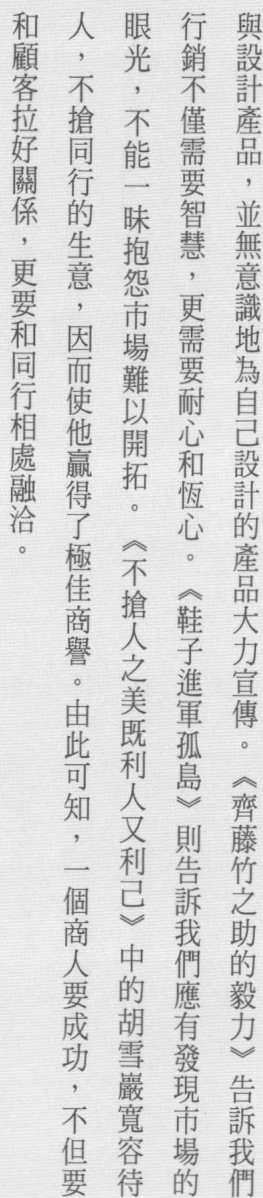 與設計產品，並無意識地為自己設計的產品大力宣傳。《齊藤竹之助的毅力》告訴我們
行銷不僅需要智慧，更需要耐心和恆心。《鞋子進軍孤島》則告訴我們應有發現市場的
眼光，不能一昧抱怨市場難以開拓。《不搶人之美既利人又利己》中的胡雪巖寬容待
人，不搶同行的生意，因而使他贏得了極佳商譽。由此可知，一個商人要成功，不但要
和顧客拉好關係，更要和同行相處融洽。